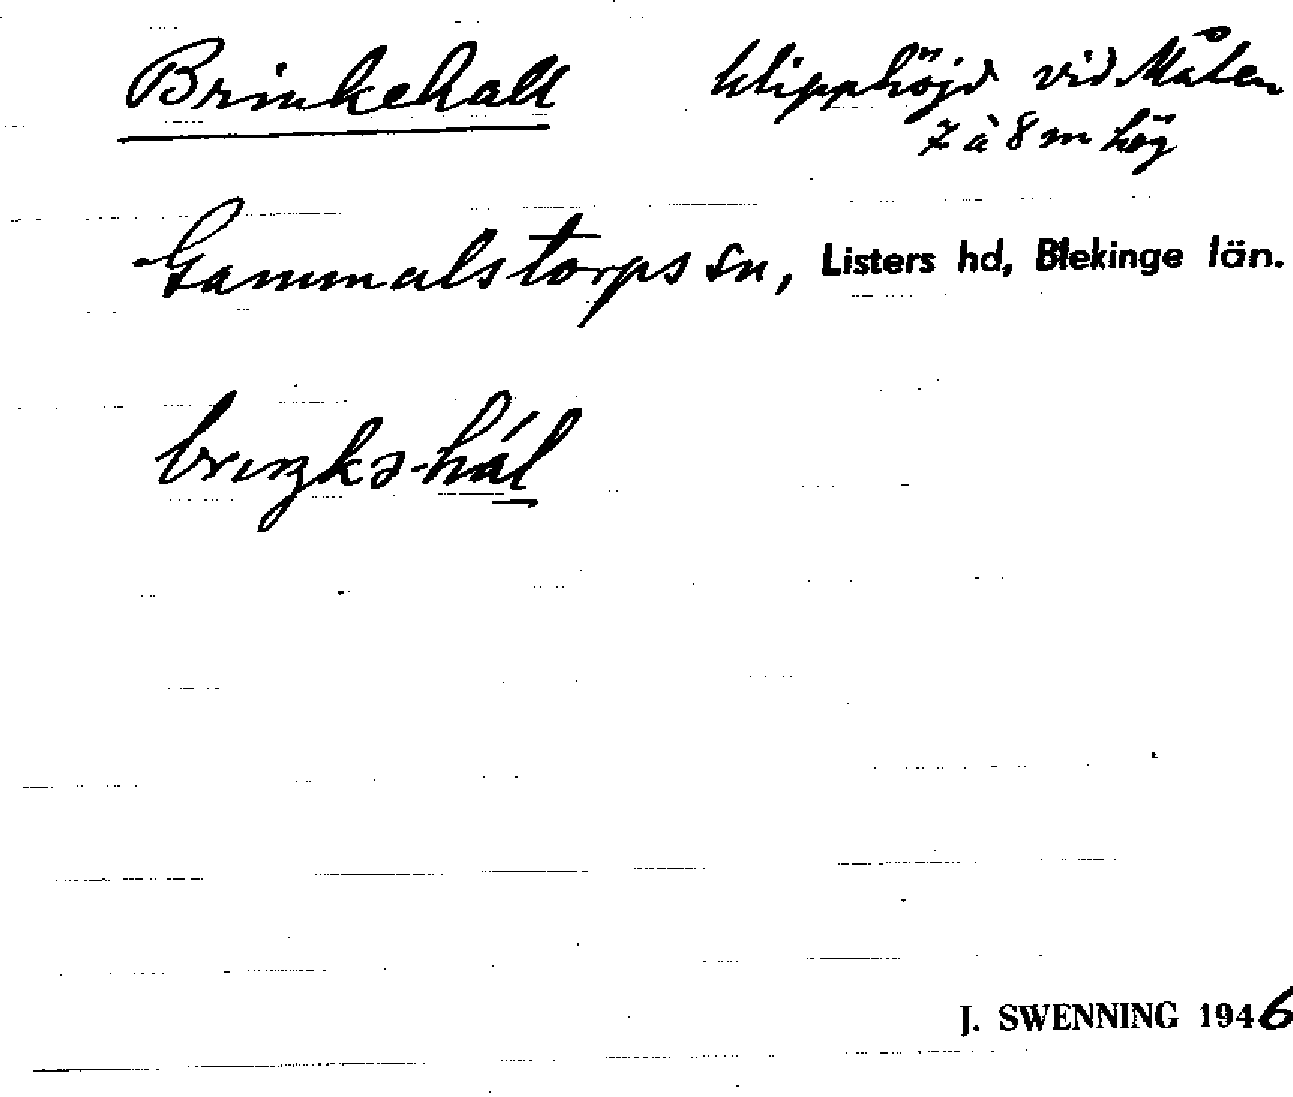 Brinkehall klipphöjd vid Måten
7 à 8 m hög
Gammalstorps sn, Listers hd, Blekinge län.
briŋkə-hál
J. SWENNING 1946